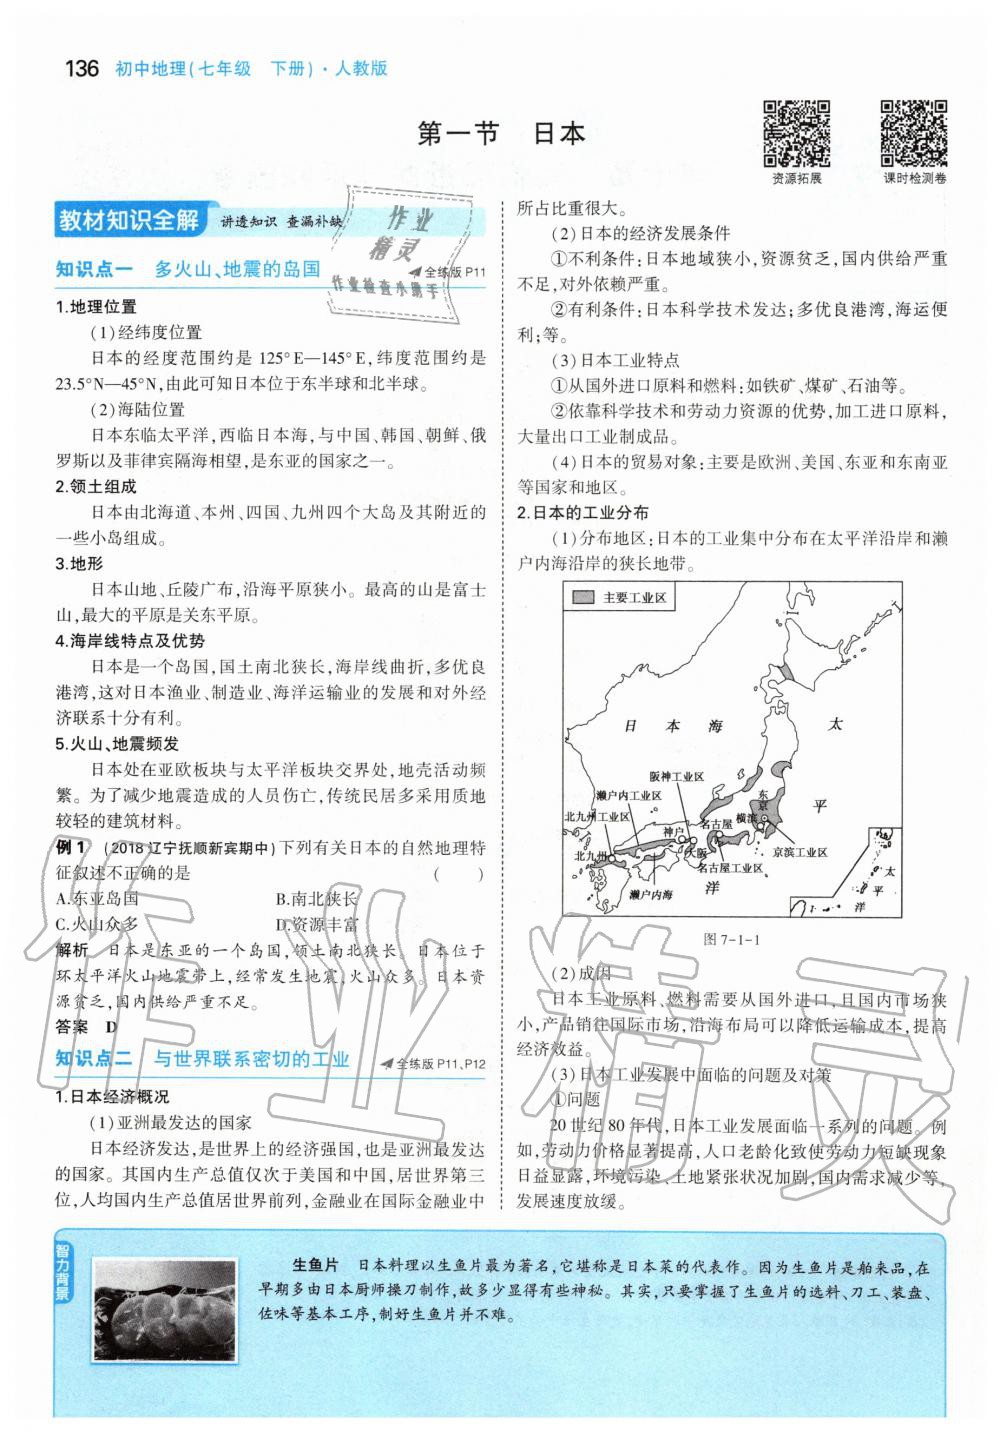 136 初中地理(七年级 下册)·人教版
第一节 日本
资源拓展
课时检测卷
教材知识全解 讲透知识 查漏补缺
作业
精灵
作业检查小助手
知识点一 多火山、地震的岛国 全练版P11
1.地理位置
(1)经纬度位置
日本的经度范围约是 125°E—145°E,纬度范围约是
23.5°N—45°N,由此可知日本位于东半球和北半球。
(2)海陆位置
日本东临太平洋,西临日本海,与中国、韩国、朝鲜、俄
罗斯以及菲律宾隔海相望,是东亚的国家之一。
2.领土组成
日本由北海道、本州、四国、九州四个大岛及其附近的
一些小岛组成。
3.地形
日本山地、丘陵广布,沿海平原狭小。最高的山是富士
山,最大的平原是关东平原。
4.海岸线特点及优势
日本是一个岛国,国土南北狭长,海岸线曲折,多优良
港湾,这对日本渔业、制造业、海洋运输业的发展和对外经
济联系十分有利。
5.火山、地震频发
日本处在亚欧板块与太平洋板块交界处,地壳活动频
繁。为了减少地震造成的人员伤亡,传统民居多采用质地
较轻的建筑材料。
例1 (2018辽宁抚顺新宾期中)下列有关日本的自然地理特
征叙述不正确的是 ( )
A.东亚岛国 B.南北狭长
C.火山众多 D.资源丰富
解析 日本是东亚的一个岛国,领土南北狭长。日本位于
环太平洋火山地震带上,经常发生地震,火山众多。日本资
源贫乏,国内供给严重不足。
答案 D
知识点二 与世界联系密切的工业 全练版P11、P12
1.日本经济概况
(1)亚洲最发达的国家
日本经济发达,是世界上的经济强国,也是亚洲最发达
的国家。其国内生产总值仅次于美国和中国,居世界第三
位,人均国内生产总值居世界前列,金融业在国际金融业中
所占比重很大。
(2)日本的经济发展条件
①不利条件:日本地域狭小,资源贫乏,国内供给严重
不足,对外依赖严重。
②有利条件:日本科学技术发达;多优良港湾,海运便
利;等。
(3)日本工业特点
①从国外进口原料和燃料:如铁矿、煤矿、石油等。
②依靠科学技术和劳动力资源的优势,加工进口原料,
大量出口工业制成品。
(4)日本的贸易对象:主要是欧洲、美国、东亚和东南亚
等国家和地区。
2.日本的工业分布
(1)分布地区:日本的工业集中分布在太平洋沿岸和濑
户内海沿岸的狭长地带。
主要工业区
日 本 海 太
阪神工业区
濑户内工业区
东京
平
北九州工业区
横滨
神户
名古屋
北九州
大阪
京滨工业区
名古屋工业区
濑户内海
洋
太
平
洋
图 7-1-1
(2)成因
日本工业原料、燃料需要从国外进口,且国内市场狭
小,产品销往国际市场,沿海布局可以降低运输成本,提高
经济效益。
(3)日本工业发展中面临的问题及对策
①问题
20世纪80年代,日本工业发展面临一系列的问题。例
如,劳动力价格显著提高,人口老龄化致使劳动力短缺现象
日益显露,环境污染、土地紧张状况加剧,国内需求减少等,
发展速度放缓。
作业精灵
智力背景
生鱼片 日本料理以生鱼片最为著名,它堪称是日本菜的代表作。因为生鱼片是舶来品,在
早期多由日本厨师操刀制作,故多少显得有些神秘。其实,只要掌握了生鱼片的选料、刀工、装盘、
佐味等基本工序,制好生鱼片并不难。